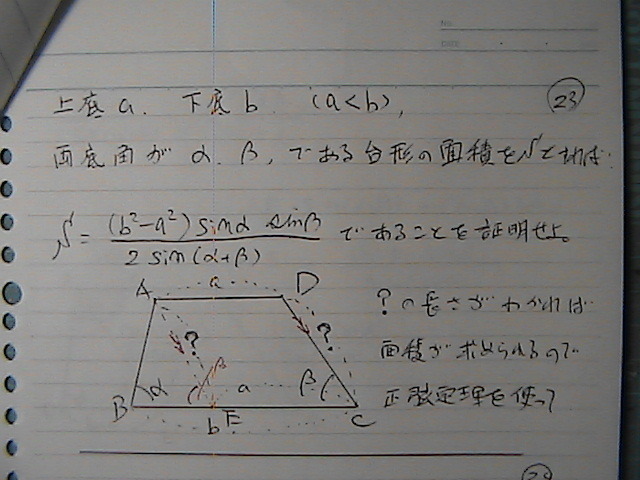 No.
DATE
上底 a. 下底 b (a<b), ㉓
両底角が α. β, である台形の面積をSとすれば
S = (b²-a²) sinα sinβ / 2 sin(α+β) であることを証明せよ。
A a D
? の長さがわかれば
? ?
面積が求められるので
β
α a β
正弦定理を使って
B b E C